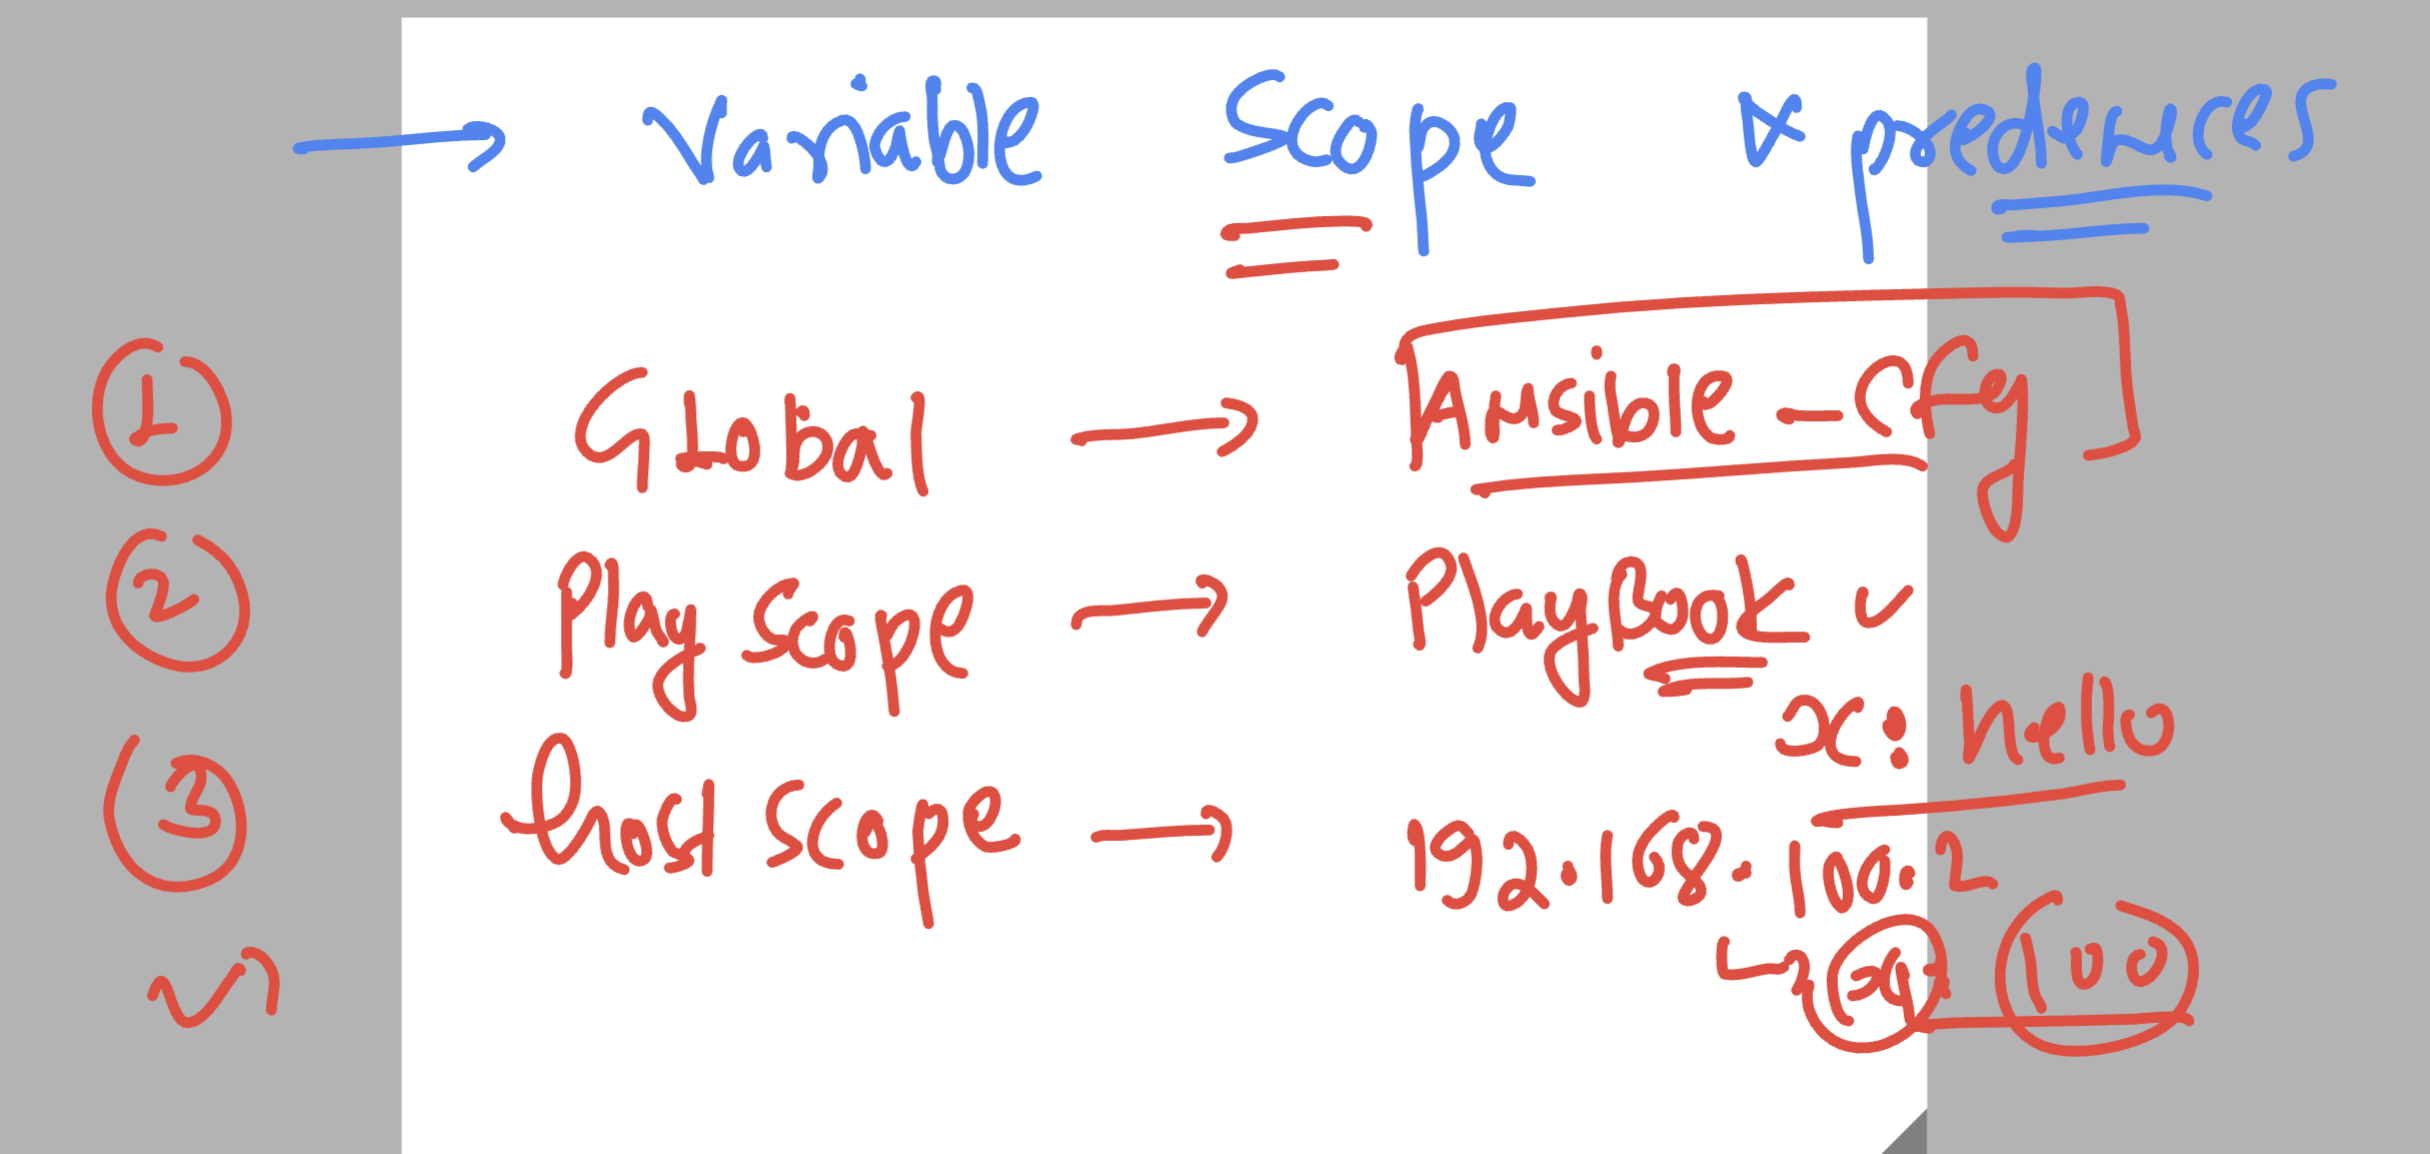 → Variable Scope & predences
1 GLobal → Ansible_Cfg
2 Play scope → PlayBook ✓
x: hello
3 host scope → 192.168.100.2
↳ x: 100